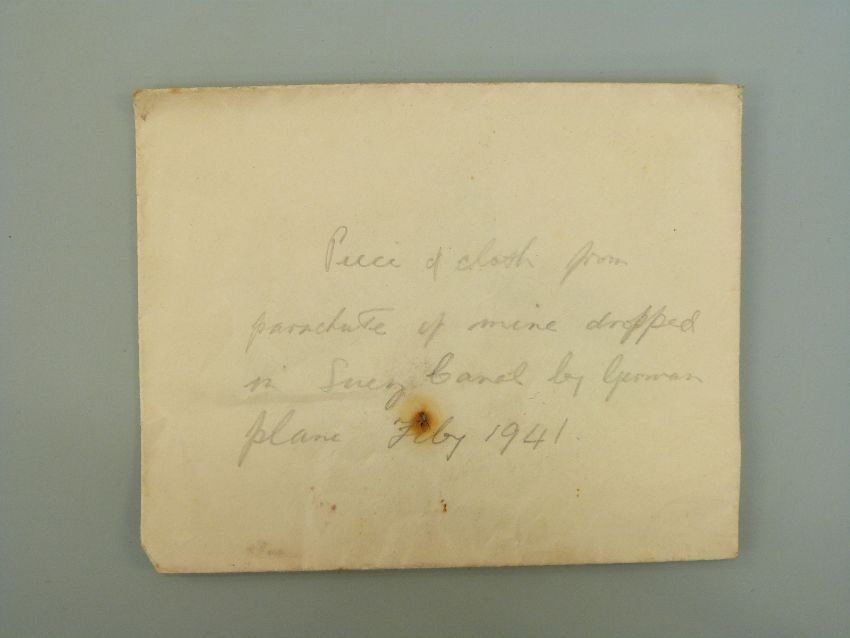 Piece of cloth from
parachute of mine dropped
in Suez Canal by German
plane Feby 1941.